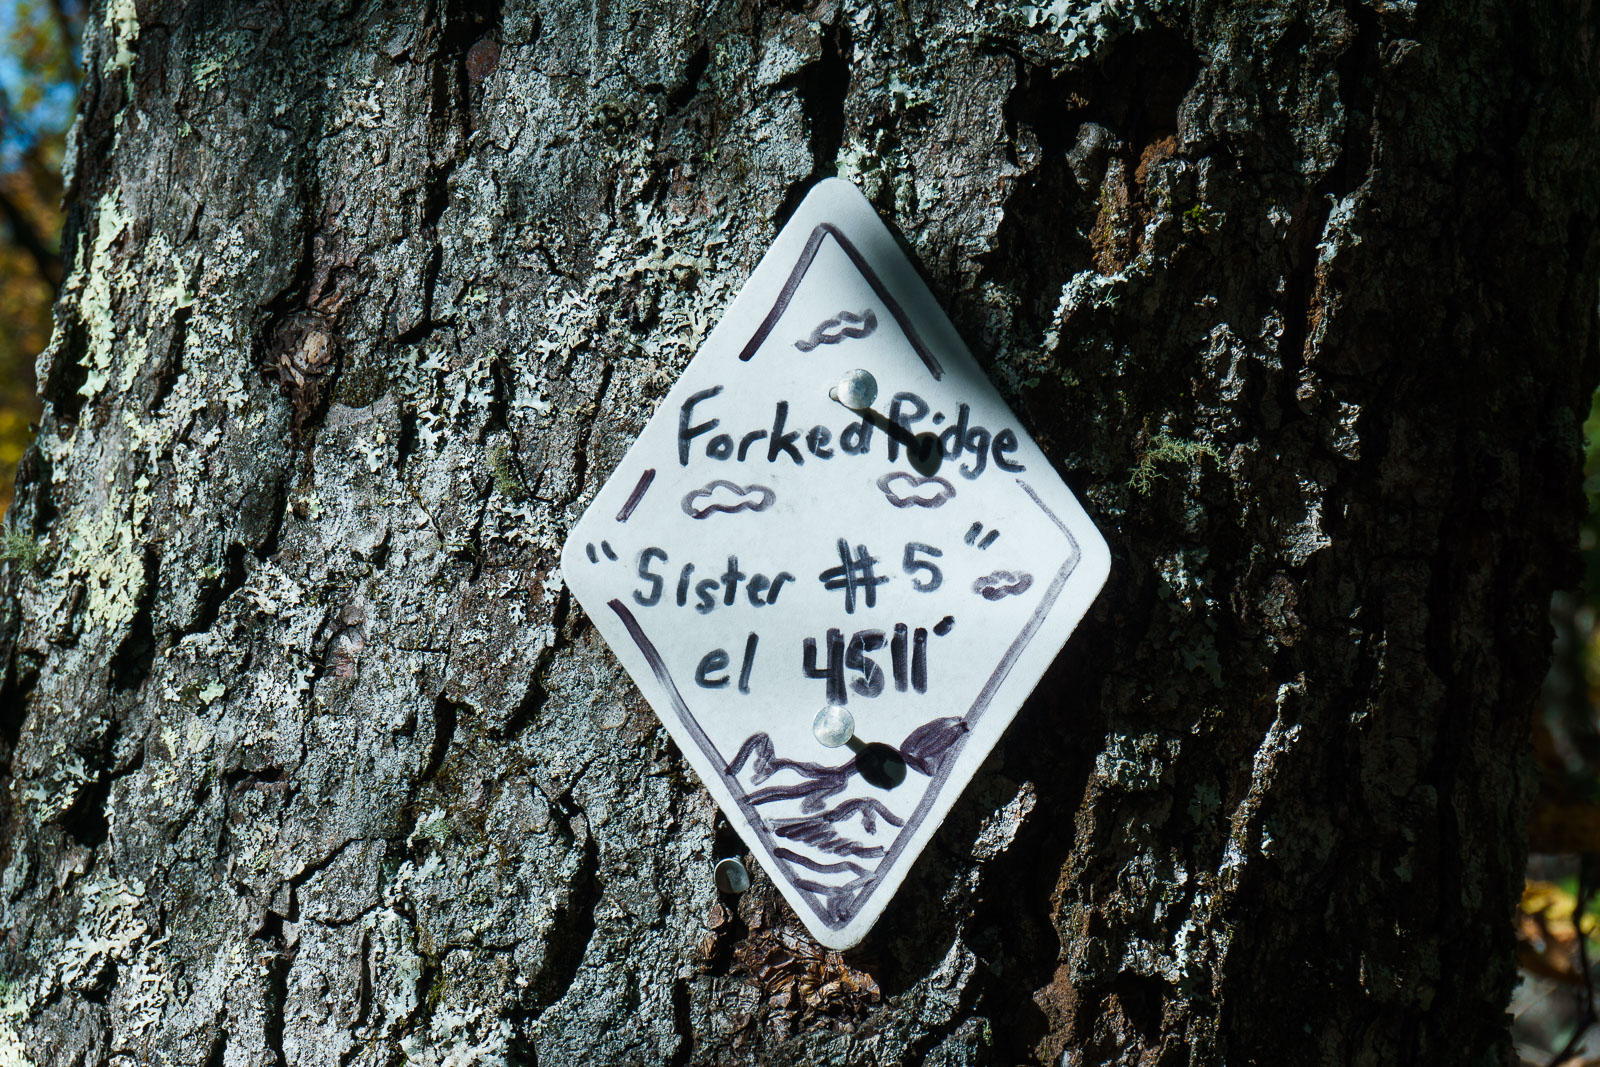 Forked Ridge
"Sister #5"
el 4511'